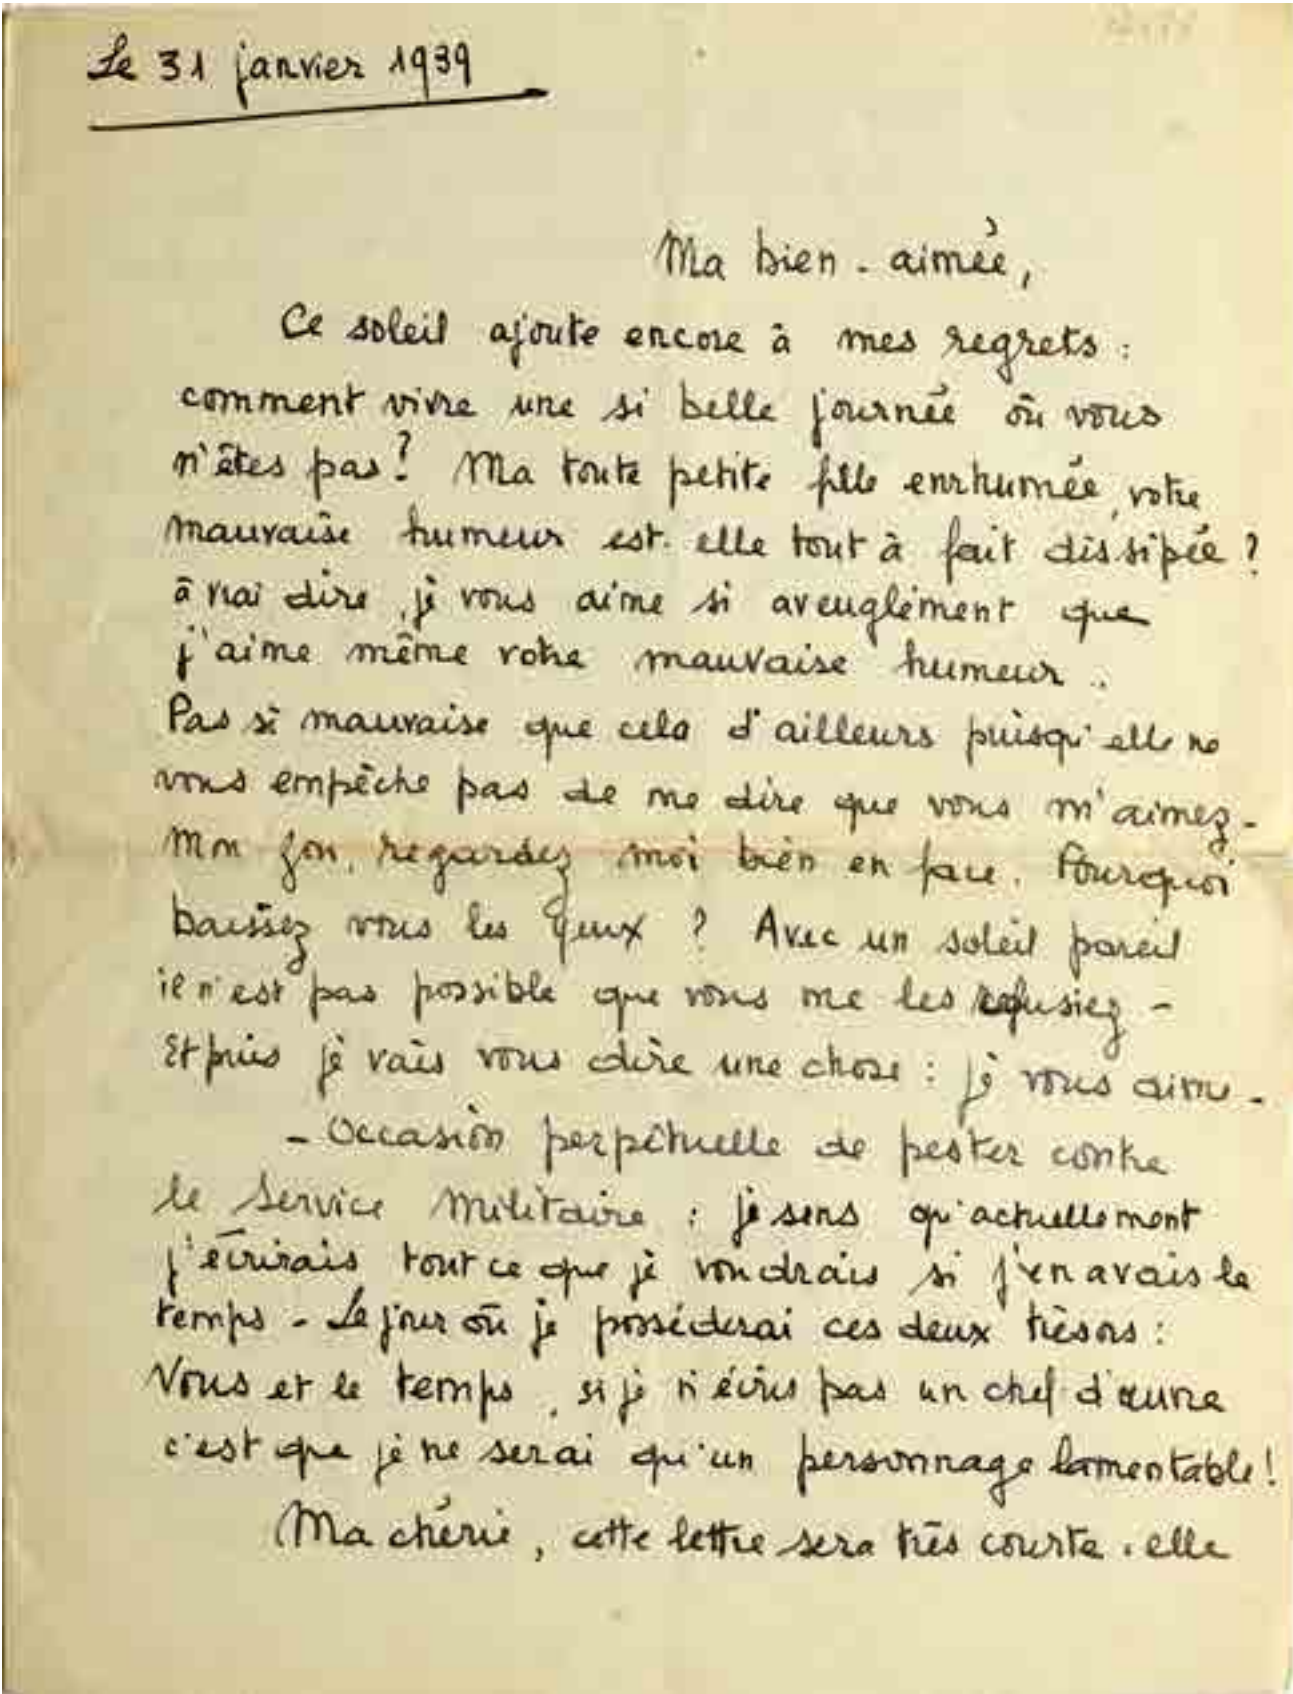 Le 31 janvier 1939
Ma bien-aimée,
Ce soleil ajoute encore à mes regrets :
comment vivre une si belle journée où vous
n'êtes pas? Ma toute petite fille enrhumée, votre
mauvaise humeur est-elle tout à fait dissipée ?
à vrai dire, je vous aime si aveuglément que
j'aime même votre mauvaise humeur..
Pas si mauvaise que cela d'ailleurs puisqu'elle ne
vous empêche pas de me dire que vous m'aimez -
Mon fou, regardez moi bien en face. Pourquoi
baissez vous les yeux ? Avec un soleil pareil
il n'est pas possible que vous me les refusiez -
Et puis je vais vous dire une chose : je vous aime -
- Occasion perpétuelle de pester contre
le Service Militaire : je sens qu'actuellement
j'écrirais tout ce que je voudrais si j'en avais le
temps - Le jour où je posséderai ces deux trésors :
Vous et le temps, si je n'écris pas un chef d'œuvre
c'est que je ne serai qu'un personnage lamentable !
Ma chérie, cette lettre sera très courte. elle